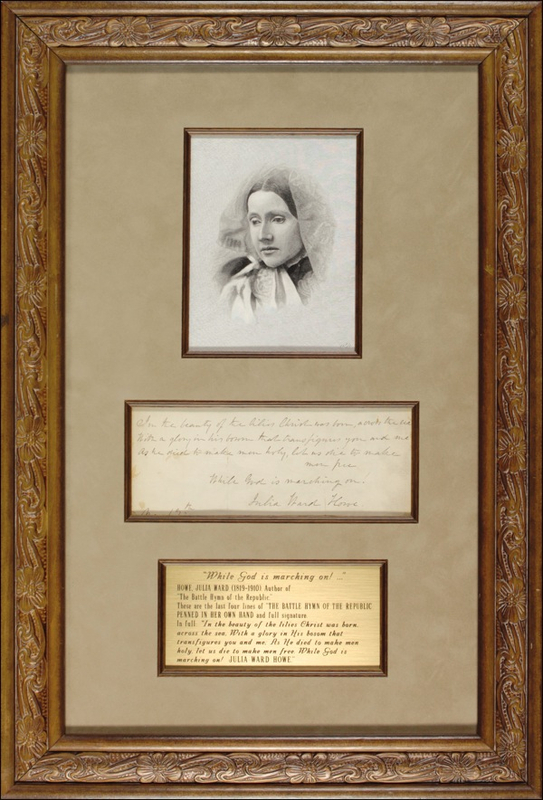 In the beauty of the lilies Christ was born, across the sea
With a glory in his bosom that transfigures you and me
As he died to make men holy, let us die to make
men free
While God is marching on.
Julia Ward Howe
"While God is marching on! ..."
HOWE, JULIA WARD (1819-1910) Author of
"The Battle Hymn of the Republic."
These are the last four lines of "THE BATTLE HYMN OF THE REPUBLIC
PENNED IN HER OWN HAND and full signature.
In full: "In the beauty of the lilies Christ was born,
across the sea, With a glory in His bosum that
transfigures you and me; As He died to make men
holy, let us die to make men free, While God is
marching on! JULIA WARD HOWE."